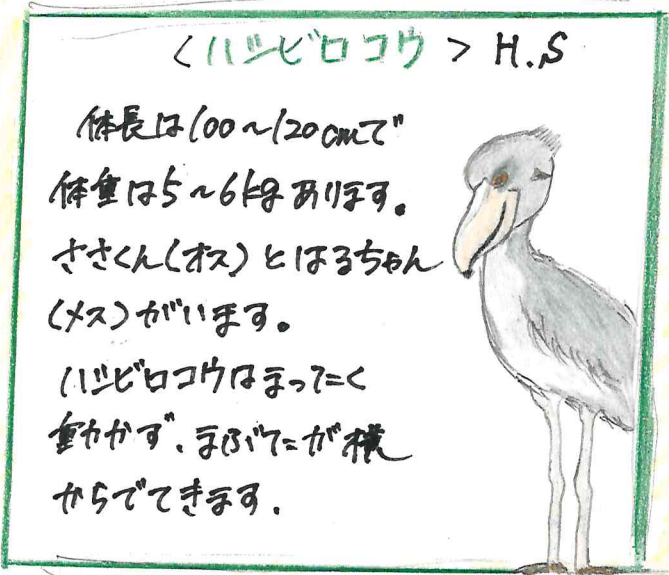 <ハシビロコウ> H.S
体長は100~120cmで
体重は5~6kgあります。
ささくん(オス)とはるちゃん
(メス)がいます。
ハシビロコウはまったく
動かず、まぶたが横
からでてきます。